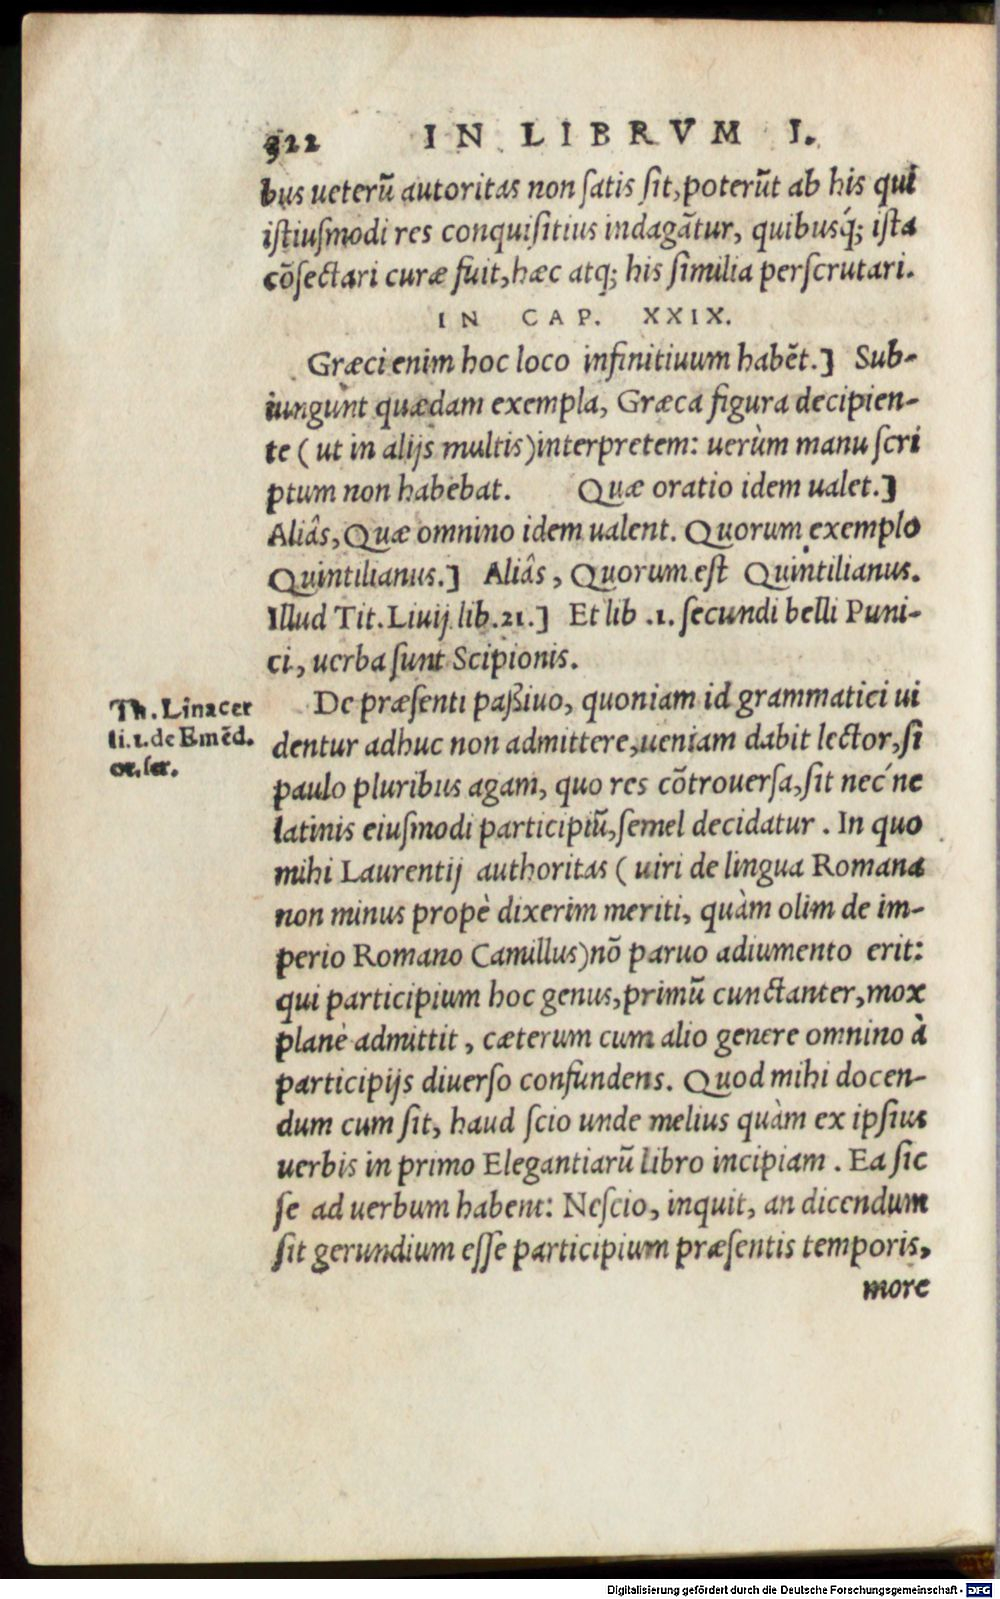 322 IN LIBRVM I.
bus ueterũ autoritas non ſatis ſit, poterũt ab his qui
iſtiuſmodi res conquiſitius indagãtur, quibusq́; iſta
cõſectari curæ fuit, hæc atq; his ſimilia perſcrutari.
IN CAP. XXIX.
Græci enim hoc loco infinitiuum habẽt.] Sub-
iungunt quædam exempla, Græca figura decipien-
te ( ut in alijs multis) interpretem: uerùm manu ſcri
ptum non habebat. Quæ oratio idem ualet.]
Aliâs, Quæ omnino idem ualent. Quorum exemplo
Quintilianus.] Aliâs, Quorum eſt Quintilianus.
Illud Tit. Liuij lib. 21.] Et lib .1. ſecundi belli Puni-
ci, uerba ſunt Scipionis.
De præſenti paßiuo, quoniam id grammatici ui
Th. Linacer
li. 1. de Emẽd.
dentur adhuc non admittere, ueniam dabit lector, ſi
paulo pluribus agam, quo res cõtrouerſa, ſit nec´ne
latinis eiuſmodi participiũ, ſemel decidatur . In quo
mihi Laurentij authoritas ( uiri de lingua Romana
non minus propè dixerim meriti, quàm olim de im-
perio Romano Camillus) nõ paruo adiumento erit:
qui participium hoc genus, primũ cunctanter, mox
planè admittit, cæterum cum alio genere omnino à
participijs diuerſo confundens. Quod mihi docen-
dum cum ſit, haud ſcio unde melius quàm ex ipſius
uerbis in primo Elegantiarũ libro incipiam . Ea ſic
ſe ad uerbum habent: Neſcio, inquit, an dicendum
ſit gerundium eſſe participium præſentis temporis,
more
Digitalisierung gefördert durch die Deutsche Forschungsgemeinschaft - DFG